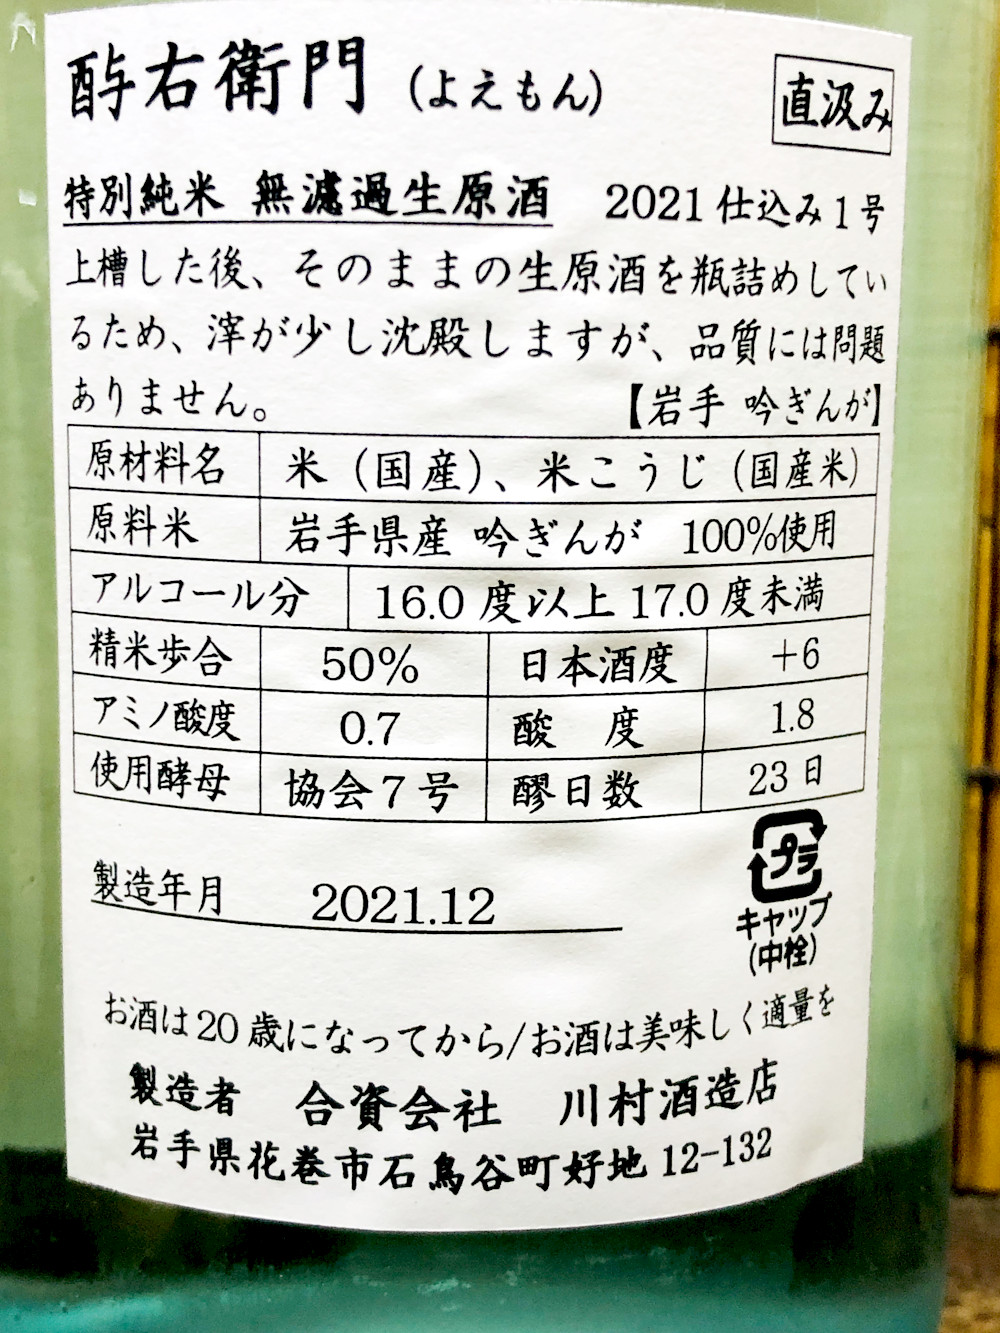 酉与右衛門 (よえもん)
直汲み
特別純米 無濾過生原酒 2021 仕込み1号
上槽した後、そのままの生原酒を瓶詰めしてい
るため、滓が少し沈殿しますが、品質には問題
ありません。 【岩手 吟ぎんが】
原材料名 米(国産)、米こうじ(国産米)
原料米 岩手県産 吟ぎんが 100%使用
アルコール分 16.0 度以上 17.0 度未満
精米歩合 50% 日本酒度 +6
アミノ酸度 0.7 酸 度 1.8
使用酵母 協会7号 醪日数 23日
製造年月 2021.12
プラ
キャップ
(中栓)
お酒は20歳になってから/お酒は美味しく適量を
製造者 合資会社 川村酒造店
岩手県花巻市石鳥谷町好地 12-132